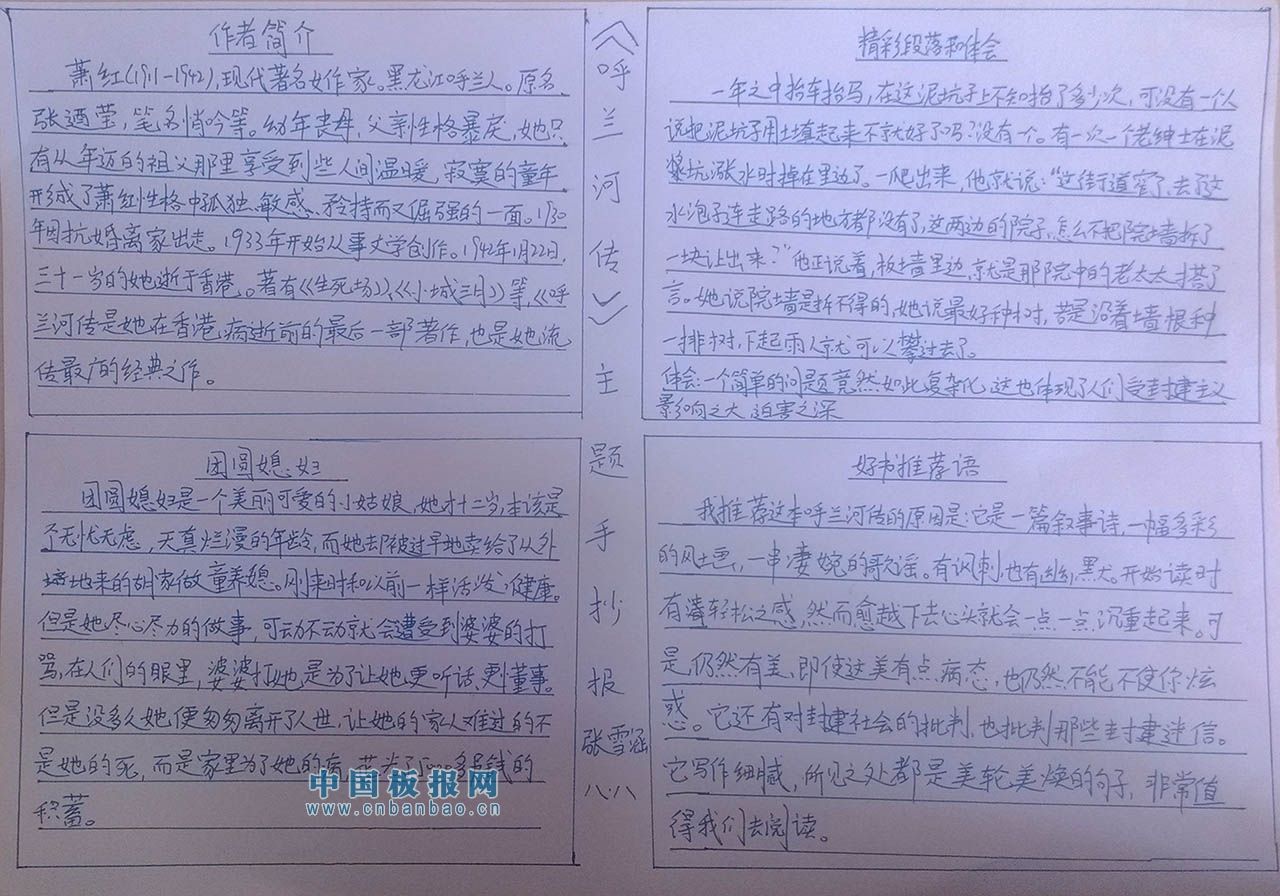 作者简介
萧红(1911-1942),现代著名女作家。黑龙江呼兰人。原名
张迺莹,笔名悄吟等。幼年丧母,父亲性格暴戾,她只
有从年迈的祖父那里享受到些人间温暖,寂寞的童年
形成了萧红性格中孤独、敏感、矜持而又倔强的一面。1930
年因抗婚离家出走。1933年开始从事文学创作。1942年1月22日,
三十一岁的她逝于香港。著有《生死场》,《小城三月》等,《呼
兰河传是她在香港病逝前的最后一部著作,也是她流
传最广的经典之作。
《呼兰河传》主题手抄报
张雪涵
八八
精彩段落和体会
一年之中抬车抬马,在这泥坑子上不知抬了多少次,可没有一个人
说把泥坑子用土填起来不就好了吗?没有一个。有一次一个老绅士在泥
浆坑涨水时掉在里边了。一爬出来,他就说:“这街道窄了,去了这
水泡子连走路的地方都没有了,这两边的院子,怎么不把院墙拆了
一块让出来?”他正说着,板墙里边,就是那院中的老太太搭了
言。她说院墙是拆不得的,她说最好种树,若是沿着墙根种
一排树,下起雨人就可以攀过去了。
体会:一个简单的问题竟然如此复杂化,这也体现了人们受封建主义
影响之大,迫害之深
团圆媳妇
团圆媳妇是一个美丽可爱的小姑娘,她才十二岁,本该是
个无忧无虑,天真烂漫的年龄,而她去却被过早地卖给了从外
地来的胡家做童养媳。刚来时和以前一样活泼、健康。
但是她尽心尽力的做事,可动不动就会遭受到婆婆的打
骂,在人们的眼里,婆婆打她,是为了让她更听话、更懂事。
但是没多久她便匆匆离开了人世,让她的家人难过的不
是她的死,而是家里为了她的病,花去了 多吊钱的
积蓄。
好书推荐语
我推荐这本呼兰河传的原因是:它是一篇叙事诗,一幅多彩
的风土画,一串凄婉的歌谣。有讽刺,也有幽默。开始读时
有着轻松之感,然而愈越下去心头就会一点一点沉重起来。可
是,仍然有美,即使这美有点病态,也仍然不能不使你炫
惑。它还有对封建社会的批判,也批判那些封建迷信。
它写作细腻,所见之处都是美轮美焕的句子,非常值
得我们去阅读。
中国板报网
www.cnbanbao.cn